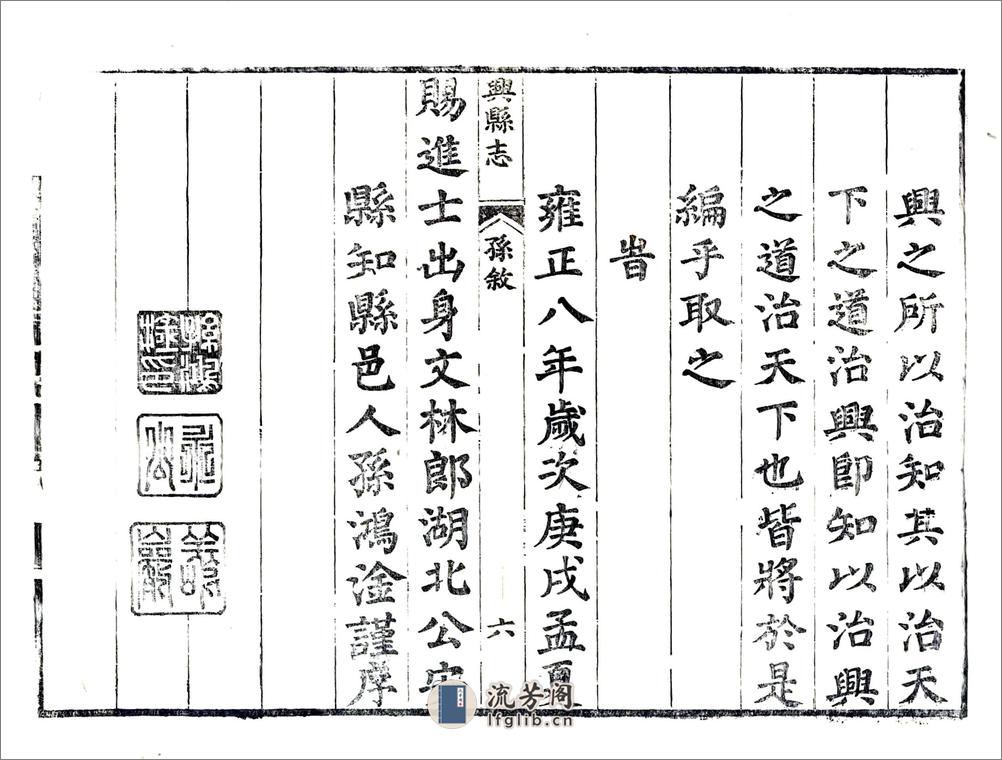 興之所以治知其以治天
下之道治興即知以治興
之道治天下也皆將於是
編乎取之
旹
雍正八年歲次庚戌孟夏
興縣志 孫敘 六
賜進士出身文林郎湖北公安
縣知縣邑人孫鴻淦謹序
流芳阁
lfglib.cn